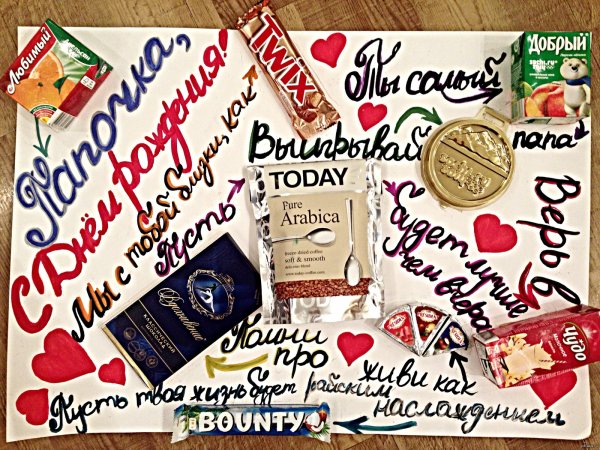 Любимый
Апельсин
Папочка,
С Днём рождения!
Мы с тобой близки, как
TWIX
Ты самый
Добрый
sochi.ru
папа
Выигрывай
Пусть
TODAY
Pure
Arabica
freeze dried coffee
soft & smooth
delicious blend
www.today-coffee.com
TODAY
будет лучше
чем вчера
Верь в
чудо
Помни
про
Вдохновение
живи как
Пусть твоя жизнь будет райским
наслаждением
BOUNTY